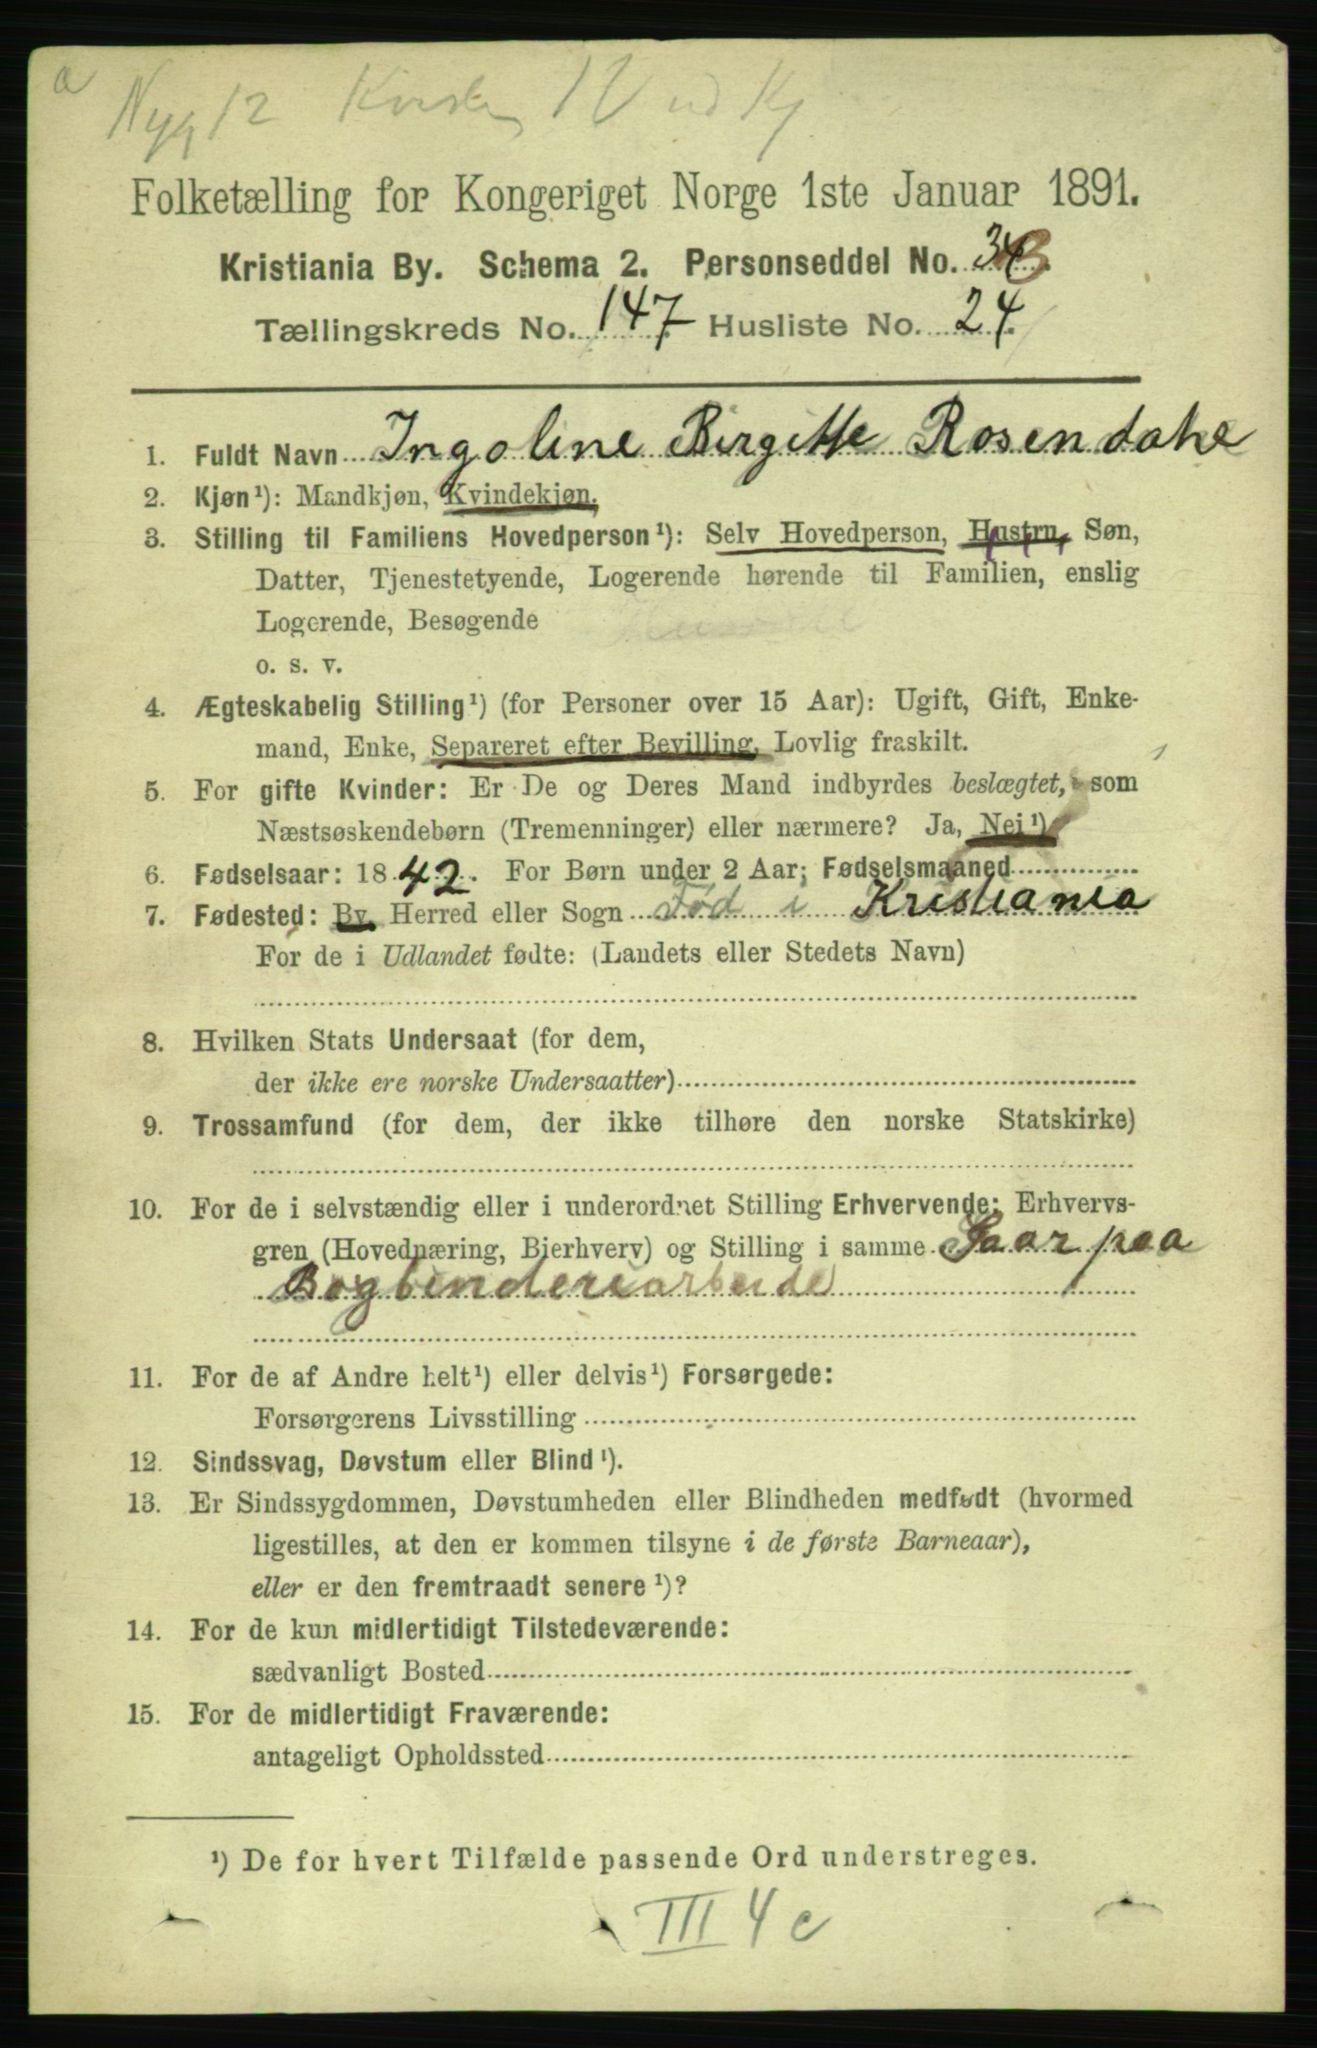 a
Nyg 12
Folketælling for Kongeriget Norge 1ste Januar 1891.
Kristiania By. Schema 2. Personseddel No. 33
Tællingskreds No. 147 Husliste No. 24
1. Fuldt Navn Ingoline Birgitte Rosendahl
2. Kjøn¹): Mandkjøn, Kvindekjøn.
3. Stilling til Familiens Hovedperson¹): Selv Hovedperson, Hustru, Søn,
Datter, Tjenestetyende, Logerende hørende til Familien, enslig
Logerende, Besøgende
o. s. v.
4. Ægteskabelig Stilling¹) (for Personer over 15 Aar): Ugift, Gift, Enke-
mand, Enke, Separeret efter Bevilling, Lovlig fraskilt.
5. For gifte Kvinder: Er De og Deres Mand indbyrdes beslægtet, som
Næstsøskendebørn (Tremenninger) eller nærmere? Ja, Nei¹)
6. Fødselsaar: 1842. For Børn under 2 Aar; Fødselsmaaned
7. Fødested: By, Herred eller Sogn Fød i Kristiania
For de i Udlandet fødte: (Landets eller Stedets Navn)
8. Hvilken Stats Undersaat (for dem,
der ikke ere norske Undersaatter)
9. Trossamfund (for dem, der ikke tilhøre den norske Statskirke)
10. For de i selvstændig eller i underordnet Stilling Erhvervende: Erhvervs-
gren (Hovednæring, Bierhverv) og Stilling i samme Gaar paa
Bogbinderiarbeide
11. For de af Andre helt¹) eller delvis¹) Forsørgede:
Forsørgerens Livsstilling
12. Sindssvag, Døvstum eller Blind¹).
13. Er Sindssygdommen, Døvstumheden eller Blindheden medfødt (hvormed
ligestilles, at den er kommen tilsyne i de første Barneaar),
eller er den fremtraadt senere¹)?
14. For de kun midlertidigt Tilstedeværende:
sædvanligt Bosted
15. For de midlertidigt Fraværende:
antageligt Opholdssted
¹) De for hvert Tilfælde passende Ord understreges.
III 4 c